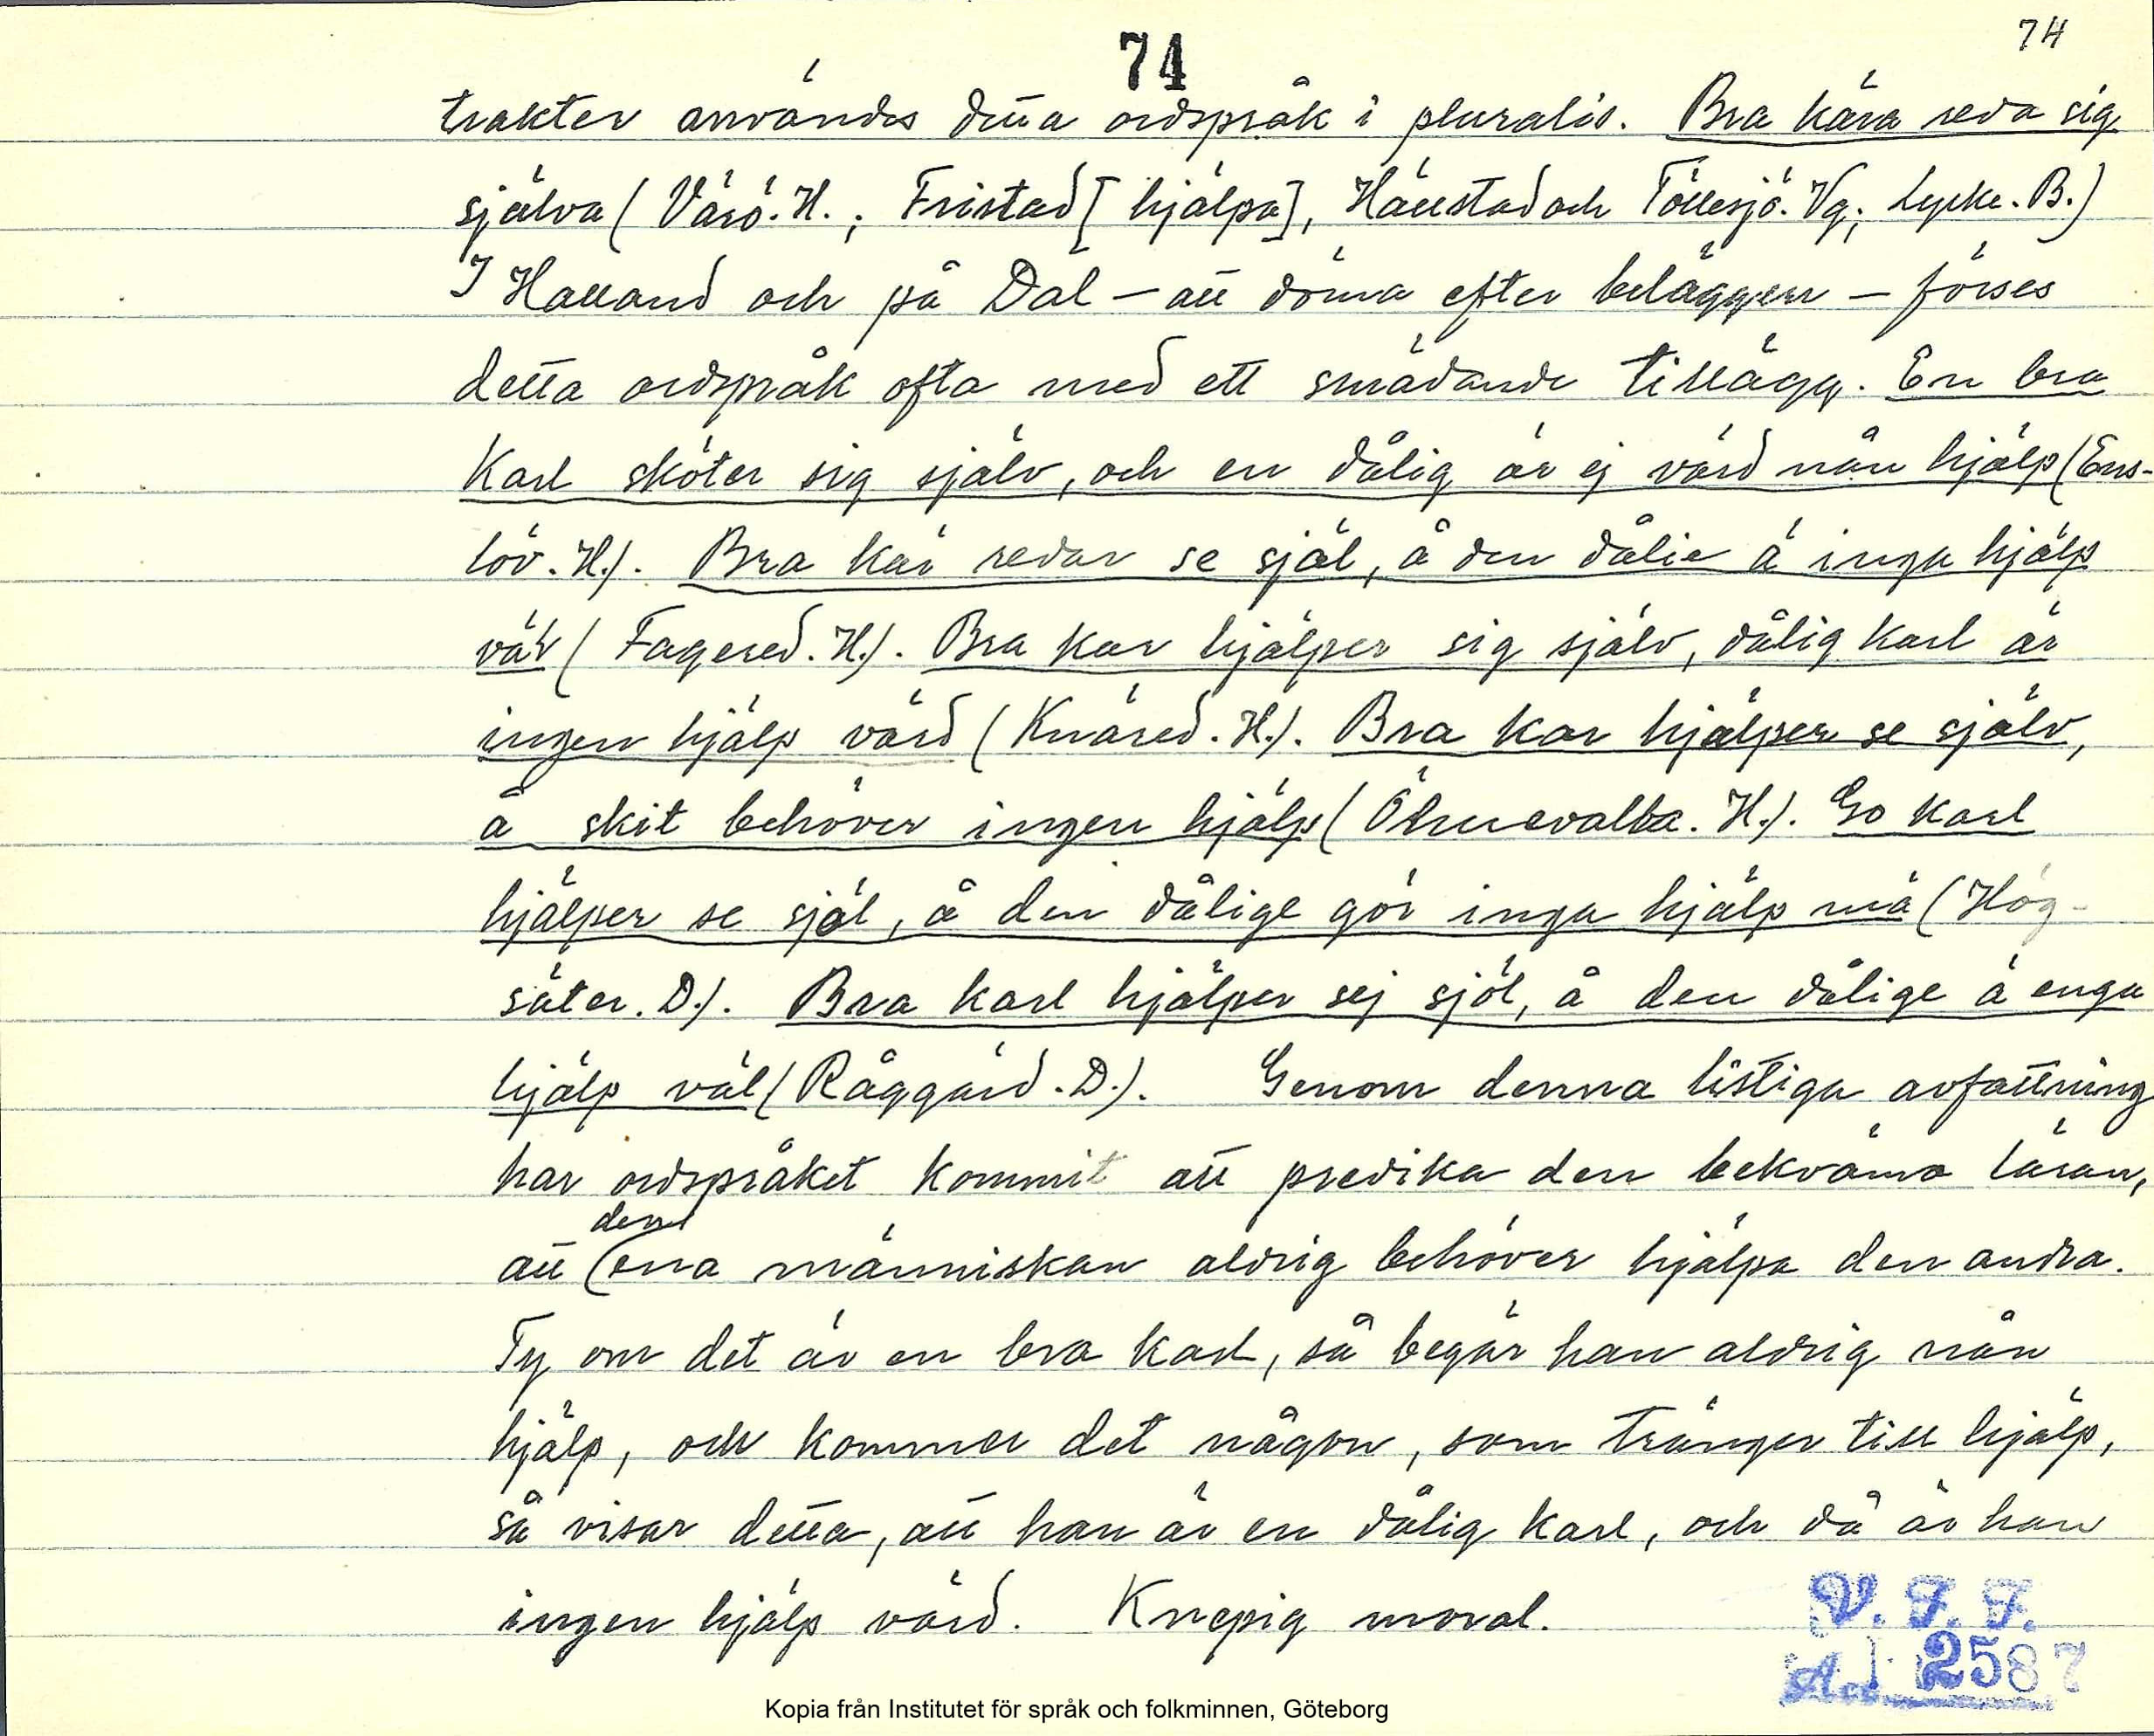 74
74
trakter användes detta ordspråk i pluralis. Bra kära reda sig
själva (Värö. H.; Fristad [hjälpa], Hällstad och Töllesjö. Vg; Lycke. B.)
I Halland och på Dal – att döma efter beläggen – förses
detta ordspråk ofta med ett smädande tillägg. En bra
karl sköter sig själv, och en dålig är ej värd nån hjälp (Ens-
löv. H.). Bra kar redar se själ, å den dålie ä inga hjälp
vär (Fagered. H.). Bra kar hjälper sig själv, dålig karl är
ingen hjälp värd (Knäred. H.). Bra kar hjälper se själv,
å skit behöver ingen hjälp (Ölmevalla. H.). Go karl
hjälper se själ, å den dålige gör inga hjälp mä (Hög-
säter. D.). Bra karl hjälper sej sjöl, å den dålige ä enga
hjälp väl (Råggärd. D.). Genom denna listiga avfattning
har ordspråket kommit att predika den bekväma läran,
den
att (ena människan aldrig behöver hjälpa den andra.
Ty om det är en bra karl, så begär han aldrig nån
hjälp, och kommer det någon, som tränger till hjälp,
så visar detta, att han är en dålig karl, och då är han
ingen hjälp värd. Knepig moral.
V. F. F.
Acc. 2587
Kopia från Institutet för språk och folkminnen, Göteborg